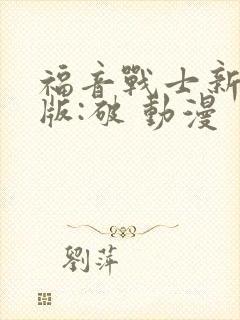 福音戰士新
版:破 動漫
劉萍